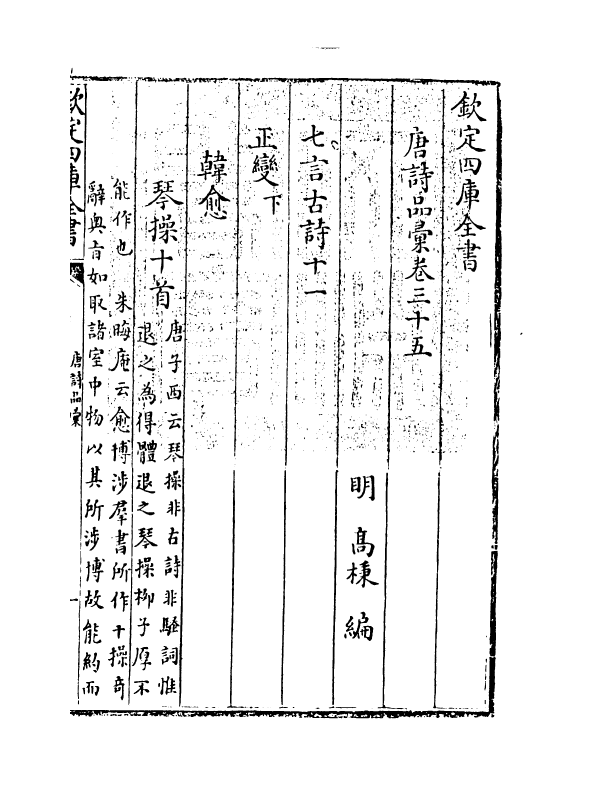 欽定四庫全書
唐詩品彙卷三十五
明 高棅 編
七言古詩十一
正變下
韓愈
琴操十首
唐子西云琴操非古詩非騷詞惟
退之為得體退之琴操柳子厚不
能作也 朱晦庵云愈博涉羣書所作十操奇
辭奥旨如取諸室中物以其所涉博故能約而
欽定四庫全書
唐詩品彙
一